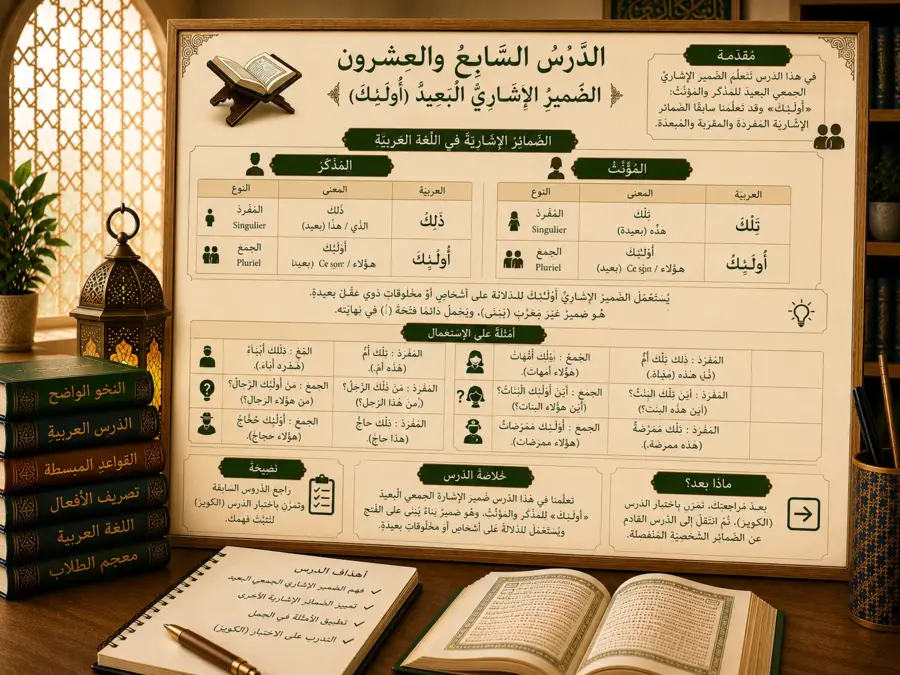 الدَّرْسُ السَّابِعُ والعِشرون
الضَّميرُ الإشاريُّ الْبَعِيدُّ (أُولَئِكَ)
مُقدّمة
في هذا الدرس نَتعلّم الضمير الإشاريّ
الجمعي البعيدَ للمذكّر والمؤنّثِ:
«أُولَئِكَ» وقد تعلّمنا سابقًا الضمائر
الإشاريّة المفردَة والمقربَة والمُبعدَة.
الضَّمائرُ الإشاريَّة في اللُّغة العَربيَّةِ
المُذكّرُ
المُؤنَّثُ
النوع
المعنى
العربيّة
المُفْردُ
Singulier
ذٰلك
الذّي / هذٰا (بعيد)
ذَلِكُ
الجمعُ
Pluriel
أُولَئِكَ
هـؤلاء /
أُولَـئِكُ
النوع
المعنى
العربيّة
المُفْردُ
Singulier
تِلْكَ
هذْه (بعيدة)
تِلْكَ
الجمعُ
Pluriel
أُولَـئِكَ
هـؤلاء /
(بعيد)
أُولَـئِكُ
يُستَعْمَلُ الضميرُ الإشاريُّ أُولَـئِكَ للدلالة على أشخاصٍ أوْ مخلوقاتٍ ذوي عقْـل بعيدةٍ.
هُـو ضميرٌ غيْرَ مَعْرَبٍ (يُبْنَى)، ويَحْملُ دائمًا فتْحَة (أ) في نِهايته.
أمْثلةٌ علي الإستعمال
المُفْرَدُ : تِلك أُمُّ
(هذه أمّ.)
المُفْرَدُ : ذلك تِلك أُمٌّ
الجَمعُ :
أُمّهاتُ
(هؤلاء أمهات).
المُفْرَدُ : مَنْ ذَلِكَ الرَّجُلُ؟
(مَن هٰذا الرجل؟)
الجمعُ : مَنْ أُولَئِكَ الرِّجالُ؟
(من هؤلاء الرجال؟)
المُفْرَدُ : أيْن تِلْكَ البِنْتُ؟
(أين هذه البنت؟)
الجمعُ : أيْن أُولَئِكَ الْبَنَاتُ؟
(أين هؤلاء البنات؟)
المُفْرَدُ : ذلك حاجُّ
(هذا حاجّ).
الجمعُ : أُولَئِكَ حُجَّاجُ
(هؤلاء حجاج).
المُفْرَدُ : تِلْكَ مَمَرّضةُ
(هذه ممرضة.)
الجمعُ : أُولَـئِكَ ممَرّضاتُ
(هؤلاء ممرضات).
نصيحَةٌ
راجع الدروس السابقة
وتمرَّن باختبار الدرس (الكويز)
لتُثبِّت فهمك.
خُلاصَةُ الدّرس
تعلّمنا في هذا الدرس ضَمير الإشارة الجمعي الْبعيدَ
«أُولَئِكَ» للمذكّر والمؤنّث، وهو ضميرُ بناءً يُبْنى على الفتح
ويُسْتعْمَلُ للدّلالة على أشخاصٍ أو مخلوقاتٍ بعيدةٍ.
ماذا بعد؟
بعـد مُراجعتك، تمَرّن باختبار الدرس
(الكويز)، ثُمَّ انتقلْ إلى الدرس القادم
عن الضمائر الشخصيّة المُنفصلة.
النحو الواضح
الدرس العربية
القواعد المبسطة
تصريف الأفعال
اللغة العربية
معجم الطلاب
أهداف الدرس
فهم الضمير الإشاري الجمعي البعيد
تمييز الضمائر الإشارية الأخرى
تطبيق الأمثلة في الجمل
التدرب على الاختبار (الكويز)